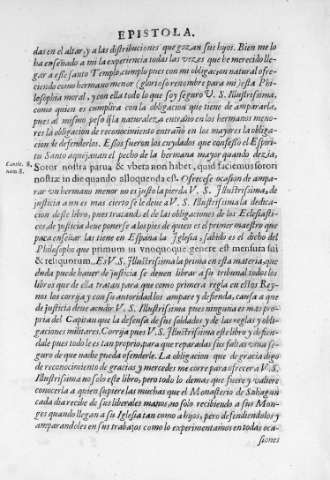 EPISTOLA.
das en el altar, y a las distribuciones que gozan sus hijos. Bien me lo
ha enseñado a mi la experiencia todas las vezes que he merecido lle-
gar a esse santo Templo, cumplo pues con mi obligacion natural ofre-
ciendo como hermano menor (glorioso renombre para mi) esta Phi-
losophia moral, y con ella todo lo que soy seguro V. S. Illustrissima,
como quien es cumplira con la obligacion que tiene de ampararla,
pues al mismo peso que la naturaleza entraño en los hermanos meno-
res la obligacion de reconocimiento entrañó en los mayores la obliga-
cion de defenderlos. Essos fueron los cuydados que confessó el Espiri-
tu Santo aquejauan el pecho de la hermana mayor quando dezia,
Cantic. 8.
num 8.
Soror nostra parua & vbera non habet, quid faciemus sorori
nostræ in die quando alloquenda est. Ofrecese ocasion de ampa-
rar vn hermano menor no es justo la pierda V. S. Illustrissima, de
justicia a mi es mas cierto se le deue a V. S. Illustrissima la dedica-
cion deste libro, pues tratando el de las obligaciones de los Ecclesiasti-
cos, de justicia deue ponerse a los pies de quien es el primer maestro que
para enseñar las tiene en España la Iglesia, sabido es el dicho del
Philosopho que primum in vnoquoque genere est mensura sui
& reliquorum. Es V. S. Illustrissima la prima en esta materia, que
duda puede hauer de justicia se deuen librar a su tribunal todos los
libros que de ella tratan para que como primera regla en estos Rey-
nos los corrija y con su autoridad los ampare y defienda, causa a que
de justicia deue acudir V. S. Illustrissima pues ninguna es mas pro-
pria del Capitan que la defensa de sus soldados y de las reglas y obli-
gaciones militares. Corrija pues V. S. Illustrissima este libro y defien-
dale pues todo le es tan proprio, para que reparadas sus faltas viua se-
guro de que nadie pueda ofenderle. La obligacion que de gracia digo
de reconocimiento de gracias y mercedes me corre para ofrecer a V. S.
Illustrissima no solo este libro, pero todo lo demas que fuere y valiere
conoceria a quien supiere las muchas que el Monasterio de Sahagun
cada dia recibe de sus liberales manos, no solo recibiendo a sus Mon-
ges quando llegan a su Iglesia tan como a hijos, pero defendiendolos y
amparandoles en sus trabajos como lo experimentamos en todas oca-
siones